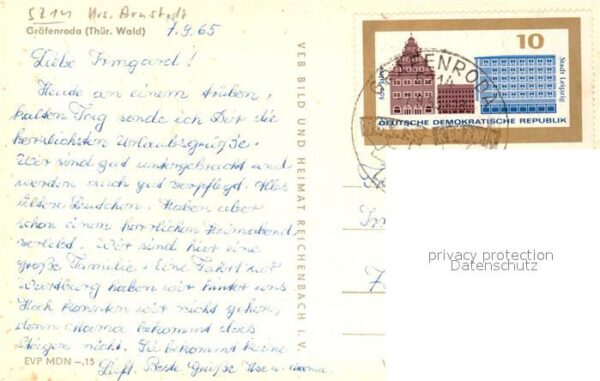 5214 Krs. Arnstadt
Gräfenroda (Thür. Wald)
1.9.65
Liebe Irmgard!
Heute an einem trüben,
kalten Tag sende ich Dir die
herzlichsten Urlaubsgrüße.
Wir sind gut untergebracht und
werden auch gut verpflegt. Alles
ältere Leutchen. Haben aber
schon einen herrlichen Heimabend
verlebt. Wir sind hier eine
große Familie. Eine Fahrt zur
Wartburg haben wir hinter uns.
Hoch konnten wir nicht gehen,
denn Mama bekommt das
Steigen nicht. Sie bekommt keine
Luft. Beste Grüße Ilse u. Mama.
EVP MDN –.15
VEB BILD UND HEIMAT REICHENBACH I. V.
10
Stadt Leipzig
DEUTSCHE DEMOKRATISCHE REPUBLIK
GRÄFENRODA
privacy protection
Datenschutz